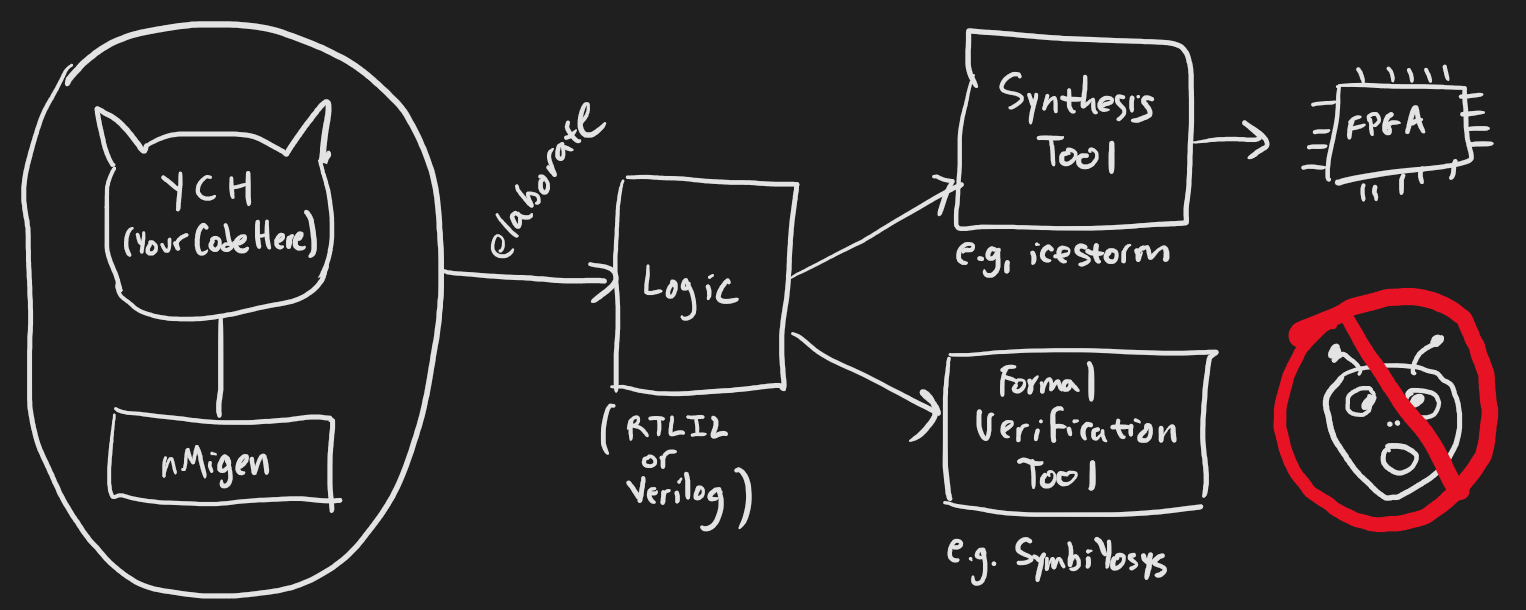 YCH
(Your Code Here)
nMigen
elaborate
Logic
(RTLIL
or
Verilog)
Synthesis
Tool
e.g, icestorm
FPGA
Formal
Verification
Tool
e.g. SymbiYosys